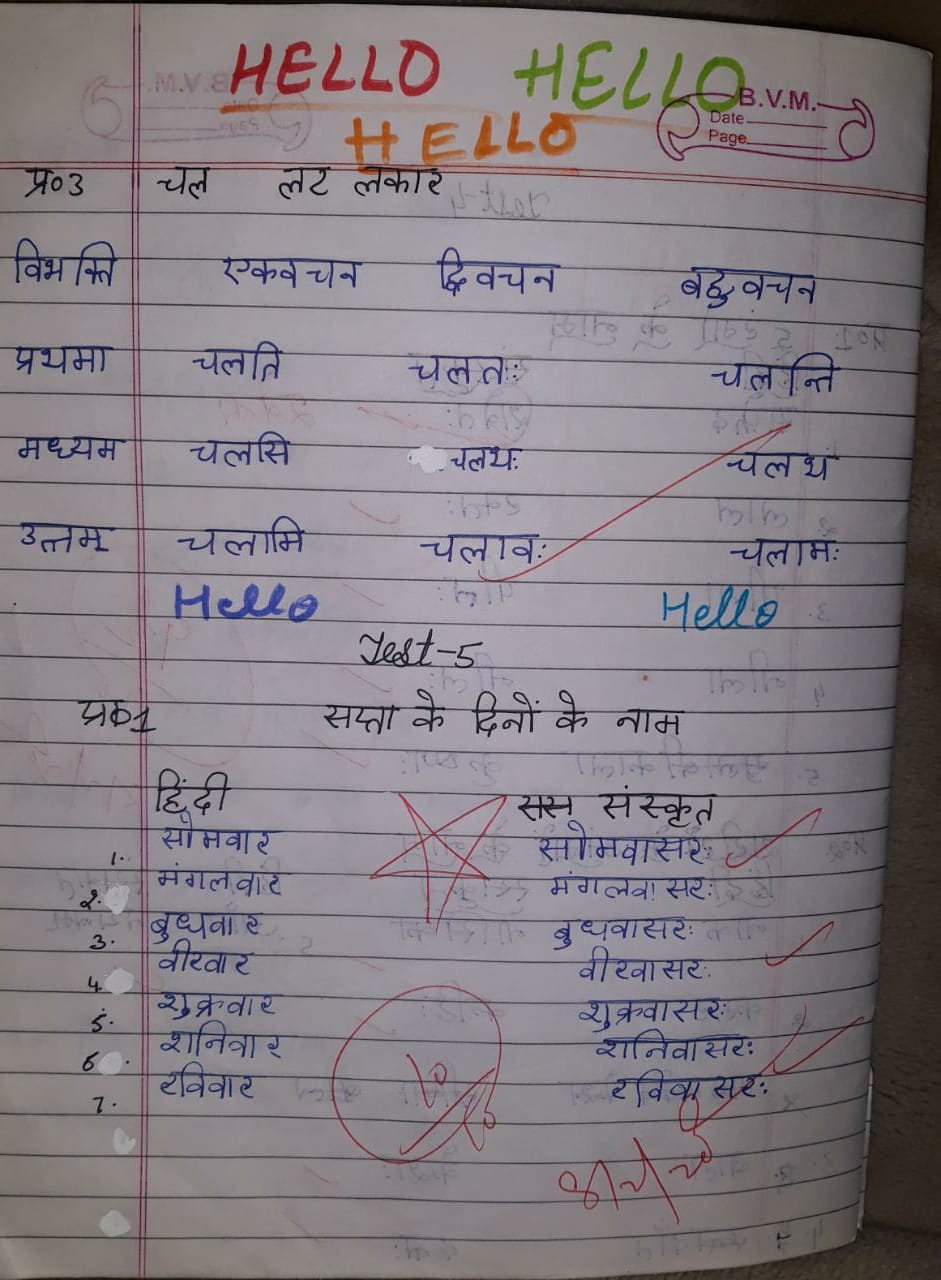 HELLO HELLO
B.V.M.
Date
Page
HELLO
प्र०3 चल लट लकार
विभक्ति एकवचन द्विवचन बहुवचन
प्रथमा चलति चलतः चलन्ति
मध्यम चलसि चलथः चलथ
उत्तम् चलामि चलावः चलामः
Hello Hello
Test-5
प्र०1 सप्ता के दिनों के नाम
हिंदी सस संस्कृत
1. सोमवार सोमवासरः
2. मंगलवार मंगलवासरः
3. बुधवार बुधवासरः
4. वीरवार वीरवासरः
5. शुक्रवार शुक्रवासरः
6. शनिवार शनिवासरः
7. रविवार रविवासरः
10/10